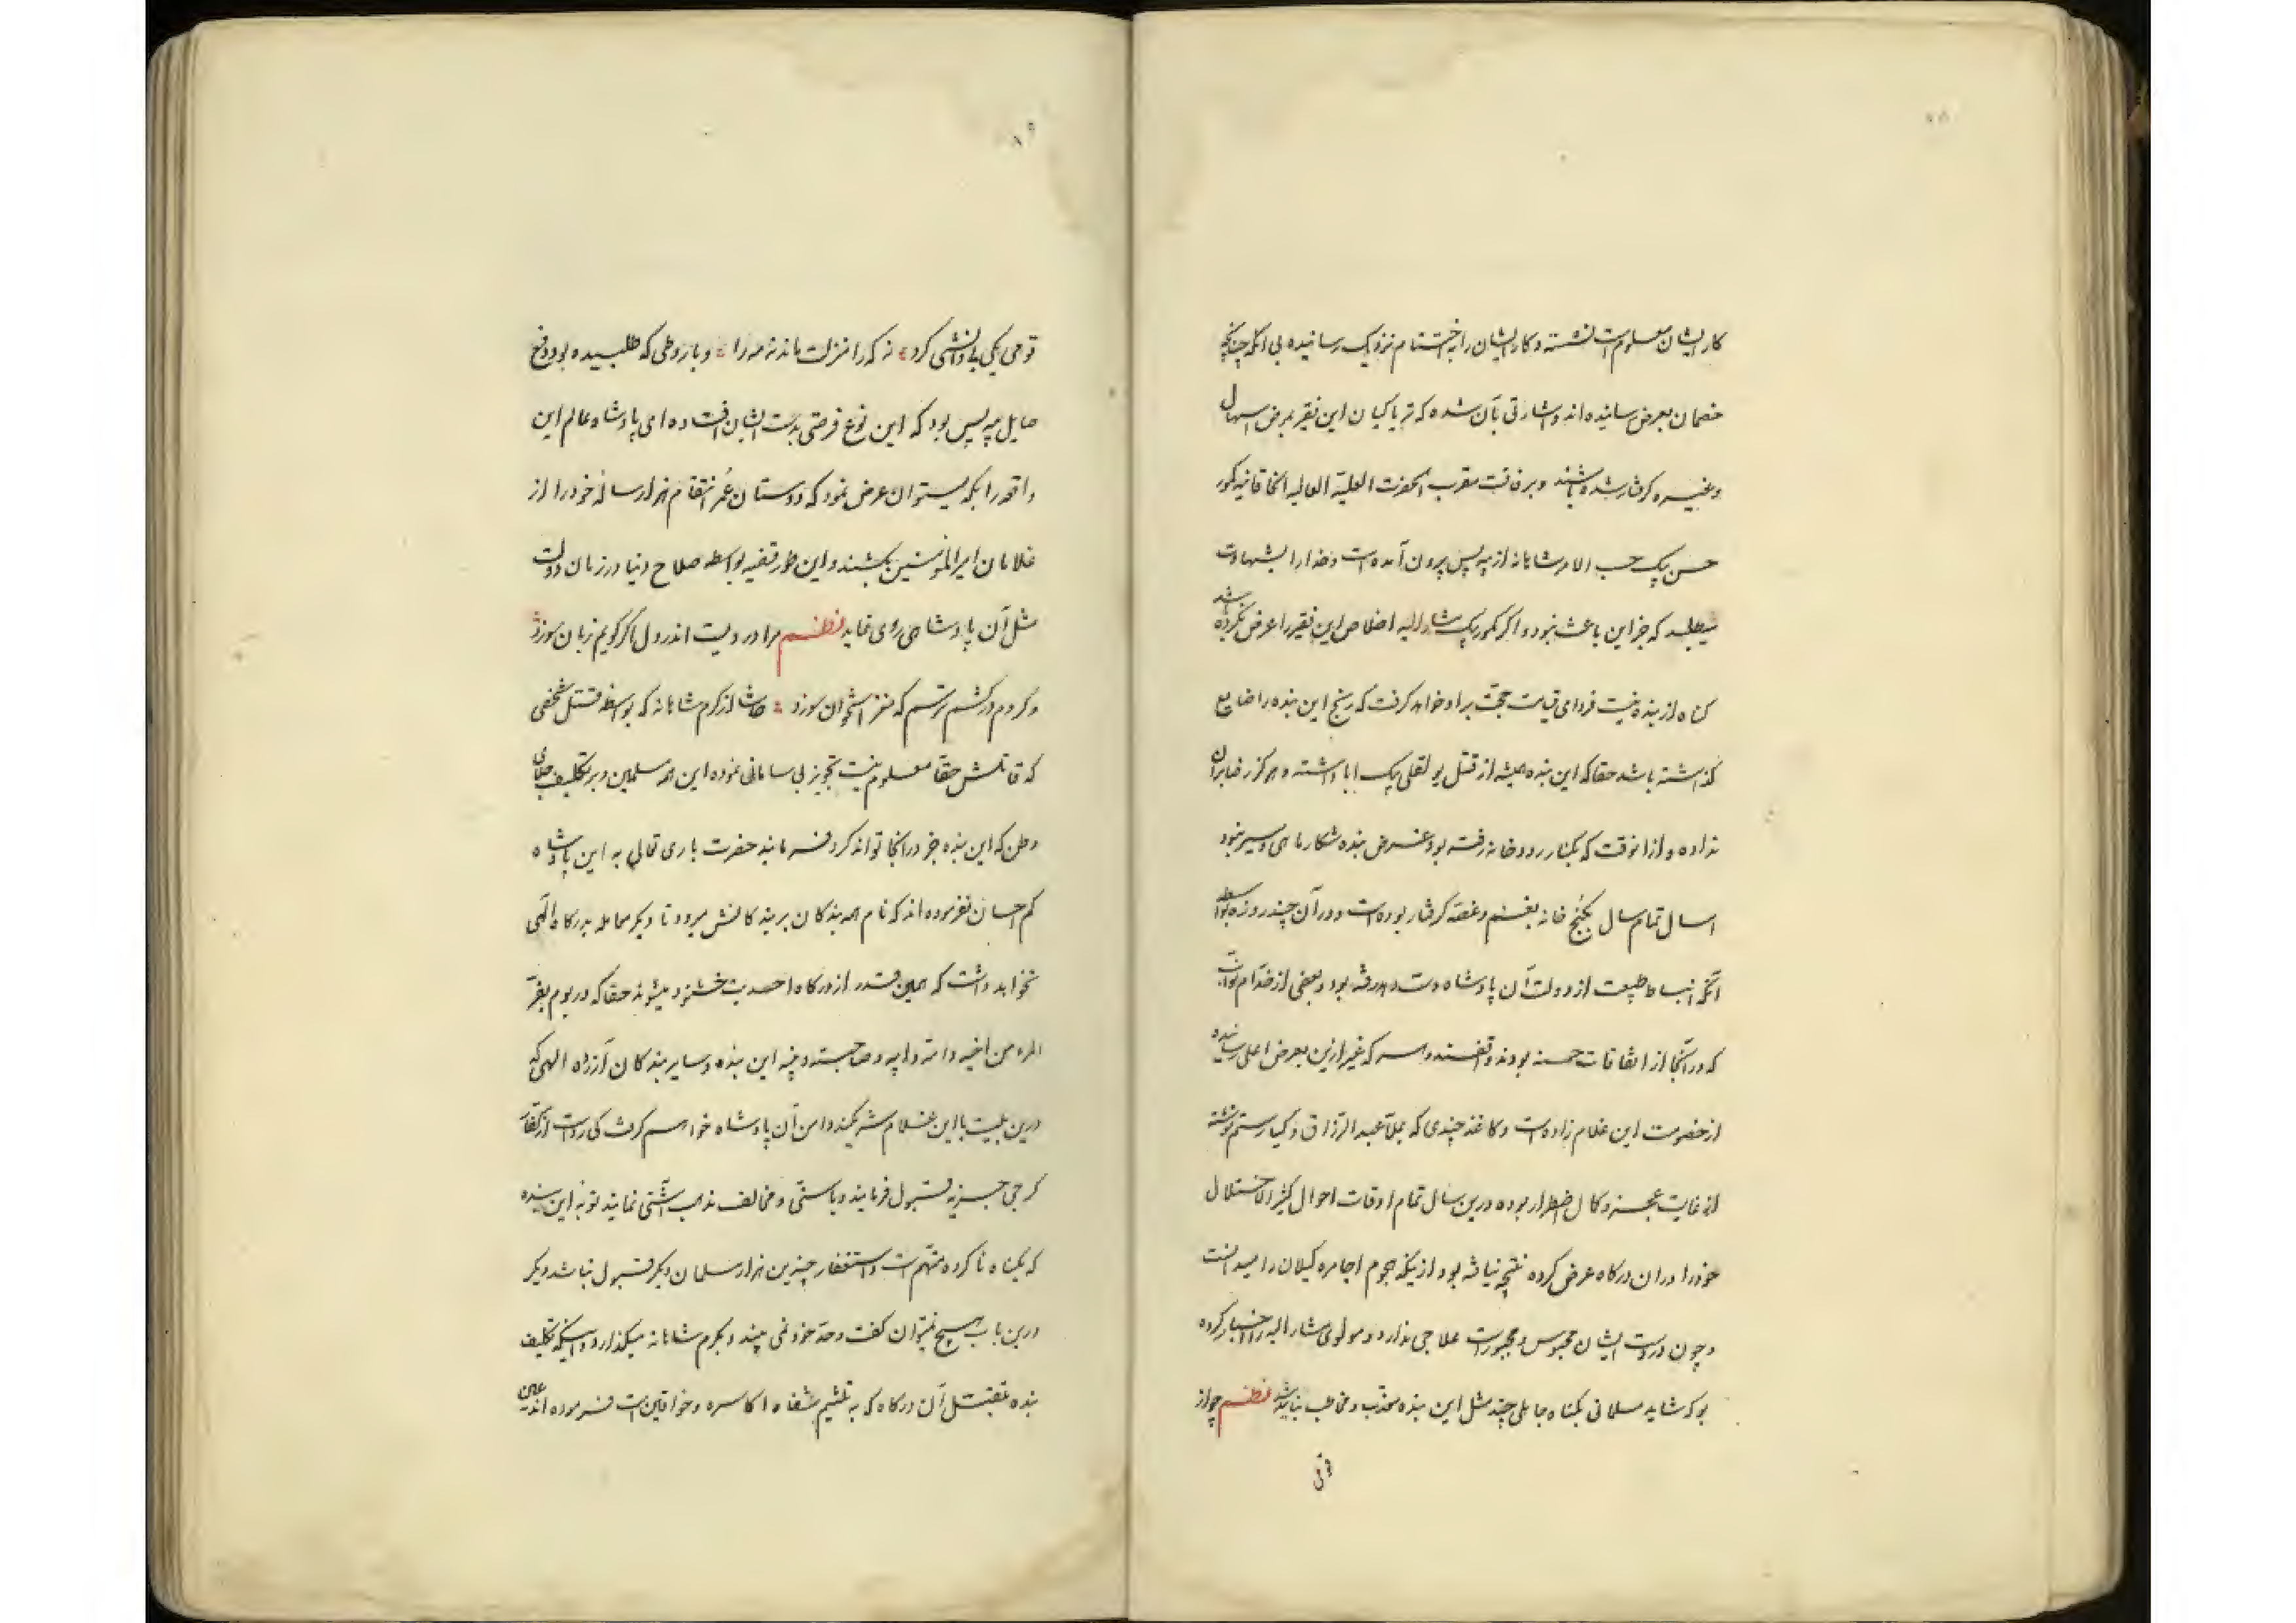 کار ایشان معلوم است نشسته و کار ایشان را به اختتام نزدیک رسانیده بی آنکه چنانچه
خصمان بعرض رسانیده اند و اشارتی بآن شده که تریاکیان این فقیر بمرض اسهال
و غیره گرفتار شده باشند و برفاقت مقرب الحضرت العلیة العالیه الخاقانیه کور
حسن بیک حسب الامر شاهانه از پیه پس بیرون آمده است و خدا را بشهادت
میطلبد که جز این باعث نبود و اگر کور بیک مشار الیه اخلاص این فقیر را عرض نکرده باشد
گناه از بنده نیست فردای قیامت حجت بر او خواهد گرفت که رنج این بنده را ضایع
گذاشته باشد حقا که این بنده همیشه از قتل بو لقلی بیک ابا داشته و هرگز رضا بران
نداده و از انوقت که بکنار رودخانه رفته بود غرض بنده شکار ماهی و سیر نبود
امسال تمام سال بکنج خانه بغم و غصه گرفتار بوده است و در آن چند روزه بواسطه
آنکه انبساط طبیعت از دولت آن پادشاه دست داده رفته بود و بعضی از خدام نواب
که در آنجا از اتفاقات حسنه بودند واقفند و هر که غیر ازین بعرض اعلی رسانیده
از خصومت این غلام زاده است و کاغذ چندی که بملا عبد الرزاق و کیا رستم نوشته
از غایت عجز و کمال اضطرار بوده درین سال تمام اوقات احوال کثیر الاختلال
خود را در ان درگاه عرض کرده نتیجه نیافته بود از نیکه هجوم اجامره گیلان را میدانست
و چون در دست ایشان محبوس و مجبور است علاجی ندارد و مولوی مشار الیه را اخبار کرده
بو که شاید مسلمانی بیگناه جاهلی چند مثل این بنده معذب و مخاطب نباشد نظم چو از
قومی
قومی یکی بی دانشی کرد نه که را منزلت ماند نه مه را و باز وطی که طلبیده بود دفع
حایل پیه پس بود که این نوع فرصتی بدست ایشان افتاده ای پادشاه عالم این
واقعه را بکه میتوان عرض نمود که دوستان عمر انتقام هزار ساله خود را از
غلامان امیر المؤمنین بکشند و این طور قضیه بواسطه صلاح دنیا در زمان دولت
مثل آن پادشاهی روی نماید نظم مرا دردیست اندر دل اگر گویم زبان سوزد
وگر دم درکشم ترسم که مغز استخوان سوزد حاشا از کرم شاهانه که بواسطه قتل شخصی
که قاتلش حقا معلوم نیست تجویز بی سامانی نموده این همه مسلمین و بر تکلیف جلای
وطن که این بنده جز در انجا تواند کرد فرمایند حضرت باری تعالی به این پادشاه
کم احسان نفرموده اند که نام همه بندگان بر بندگانش میرود تا دیگر معامله بدرگاه الهی
نخواهد داشت که همین قدر از درگاه احدیت خشنود میشوند حقا که در یوم یفر
المرء من اخیه و امه و ابیه و صاحبته و بنیه این بنده و سایر بندگان آزرده الهی که
درین بلیت با این غلام شریکند دامن آن پادشاه خواهیم گرفت کی رواست از کفار
گرجی جزیه قبول فرمایند و با سنی و مخالف مذهب آشتی نمایند توبه این بنده
که بگناه ناکرده متهم است و استغفار چندین هزار مسلمان دیگر قبول نباشد دیگر
درین باب هیچ نمیتوان گفت و حد خود نمی بیند و بکرم شاهانه میگذارد و اینکه تکلیف
بنده بتقبیل آن درگاه که به تلثیم شفاه اکاسره و خواقین است فرموده اند عین